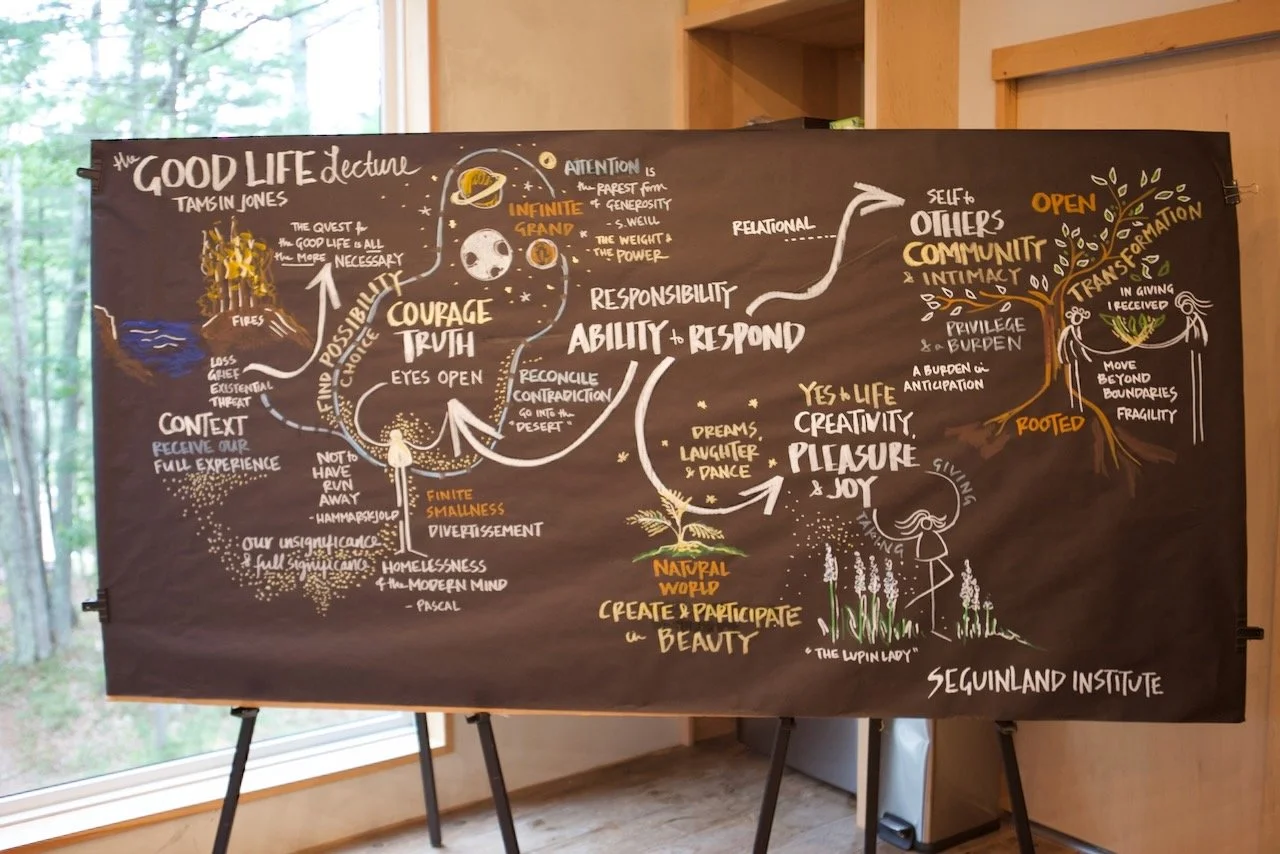 the GOOD LIFE Lecture
TAMSIN JONES
THE QUEST for
the GOOD LIFE IS ALL
the MORE NECESSARY
FIRES
LOSS
GRIEF
EXISTENTIAL
THREAT
CONTEXT
RECEIVE OUR
FULL EXPERIENCE
our insignificance
& full significance
FIND POSSIBILITY
CHOICE
COURAGE
TRUTH
EYES OPEN
INFINITE
GRAND
ATTENTION IS
the RAREST form
of GENEROSITY
- S. WEILL
THE WEIGHT &
THE POWER
RECONCILE
CONTRADICTION
GO INTO the
"DESERT"
NOT to
HAVE
RUN
AWAY
- HAMMARSKJOLD
FINITE
SMALLNESS
DIVERTISSEMENT
HOMELESSNESS
of the MODERN MIND
- PASCAL
RESPONSIBILITY
ABILITY to RESPOND
RELATIONAL
DREAMS,
LAUGHTER
& DANCE
NATURAL
WORLD
CREATE & PARTICIPATE
in BEAUTY
YES to LIFE
CREATIVITY,
PLEASURE
& JOY
GIVING
TAKING
"THE LUPIN LADY"
SELF to
OTHERS
COMMUNITY
& INTIMACY
PRIVILEGE
& a BURDEN
A BURDEN in
ANTICIPATION
OPEN
TRANSFORMATION
IN GIVING
I RECEIVED
MOVE
BEYOND
BOUNDARIES
FRAGILITY
ROOTED
SEGUINLAND INSTITUTE